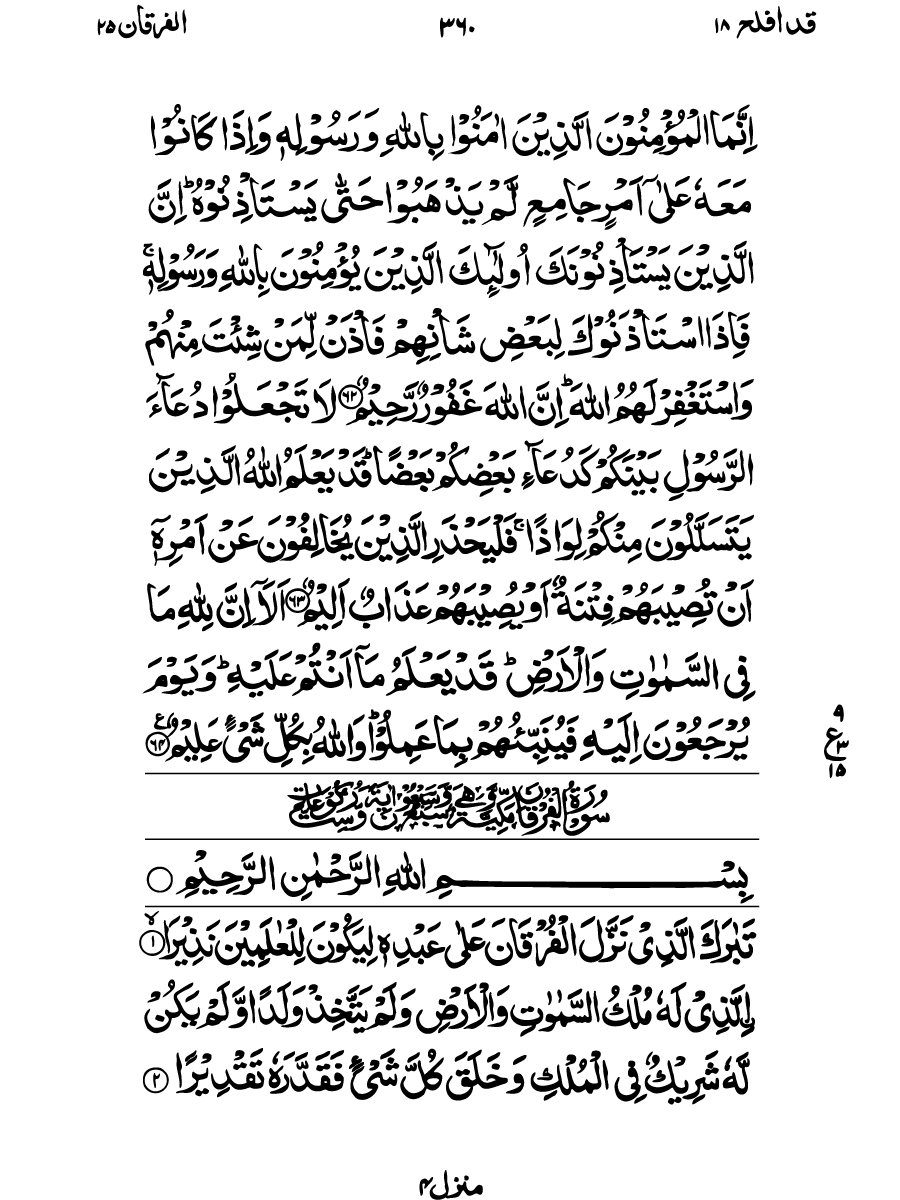 قد افلح ۱۸ ۳۶۰ الفرقان ۲۵
اِنَّمَا الْمُؤْمِنُوْنَ الَّذِیْنَ اٰمَنُوْا بِاللّٰهِ وَ رَسُوْلِهٖ وَ اِذَا كَانُوْا
مَعَهٗ عَلٰۤى اَمْرٍ جَامِعٍ لَّمْ یَذْهَبُوْا حَتّٰى یَسْتَاْذِنُوْهُ ؕ اِنَّ
الَّذِیْنَ یَسْتَاْذِنُوْنَكَ اُولٰٓىِٕكَ الَّذِیْنَ یُؤْمِنُوْنَ بِاللّٰهِ وَ رَسُوْلِهٖ ۚ
فَاِذَا اسْتَاْذَنُوْكَ لِبَعْضِ شَاْنِهِمْ فَاْذَنْ لِّمَنْ شِئْتَ مِنْهُمْ
وَ اسْتَغْفِرْ لَهُمُ اللّٰهَ ؕ اِنَّ اللّٰهَ غَفُوْرٌ رَّحِیْمٌ ﴿۶۲﴾ لَا تَجْعَلُوْا دُعَآءَ
الرَّسُوْلِ بَیْنَكُمْ كَدُعَآءِ بَعْضِكُمْ بَعْضًا ؕ قَدْ یَعْلَمُ اللّٰهُ الَّذِیْنَ
یَتَسَلَّلُوْنَ مِنْكُمْ لِوَاذًا ۚ فَلْیَحْذَرِ الَّذِیْنَ یُخَالِفُوْنَ عَنْ اَمْرِهٖۤ
اَنْ تُصِیْبَهُمْ فِتْنَةٌ اَوْ یُصِیْبَهُمْ عَذَابٌ اَلِیْمٌ ﴿۶۳﴾ اَلَاۤ اِنَّ لِلّٰهِ مَا
فِی السَّمٰوٰتِ وَ الْاَرْضِ ؕ قَدْ یَعْلَمُ مَاۤ اَنْتُمْ عَلَیْهِ ؕ وَ یَوْمَ
یُرْجَعُوْنَ اِلَیْهِ فَیُنَبِّئُهُمْ بِمَا عَمِلُوْا ؕ وَ اللّٰهُ بِكُلِّ شَیْءٍ عَلِیْمٌ ﴿۶۴﴾
۹
ع ۳
۱۵
سُوْرَةُ الْفُرْقَانِ مَكِّیَّةٌ وَّهِیَ سَبْعٌ وَّسَبْعُوْنَ اٰیَةً وَّسِتُّ رُكُوْعَاتٍ
بِسْمِ اللّٰهِ الرَّحْمٰنِ الرَّحِیْمِ
تَبٰرَكَ الَّذِیْ نَزَّلَ الْفُرْقَانَ عَلٰى عَبْدِهٖ لِیَكُوْنَ لِلْعٰلَمِیْنَ نَذِیْرَا ۙ﴿۱﴾
ِ۟الَّذِیْ لَهٗ مُلْكُ السَّمٰوٰتِ وَ الْاَرْضِ وَ لَمْ یَتَّخِذْ وَلَدًا وَّ لَمْ یَكُنْ
لَّهٗ شَرِیْكٌ فِی الْمُلْكِ وَ خَلَقَ كُلَّ شَیْءٍ فَقَدَّرَهٗ تَقْدِیْرًا ﴿۲﴾
منزل ۴